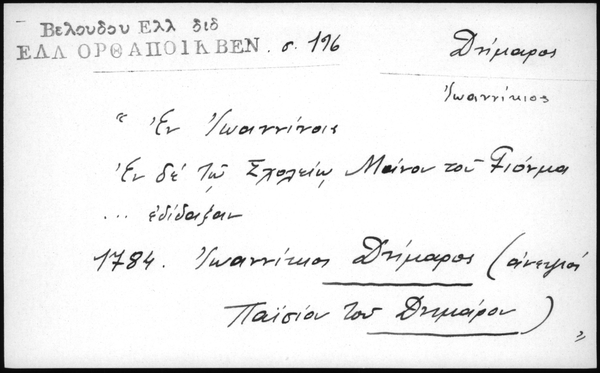 Βελουδου Ελλ διδ
ΕΛΛ ΟΡΘ ΑΠΟΙΚ ΒΕΝ. σ. 196
Δημάρος
Ἰωαννίκιος
“ Ἐν Ἰωαννίνοις
Ἐν δέ τῷ Σχολείῳ Μάνου τοῦ Γιόνμα
... ἐδίδαξαν
1784. Ἰωαννίκιος Δημάρος (ἀνεψιός
Παϊσίου τοῦ Δημάρου) „